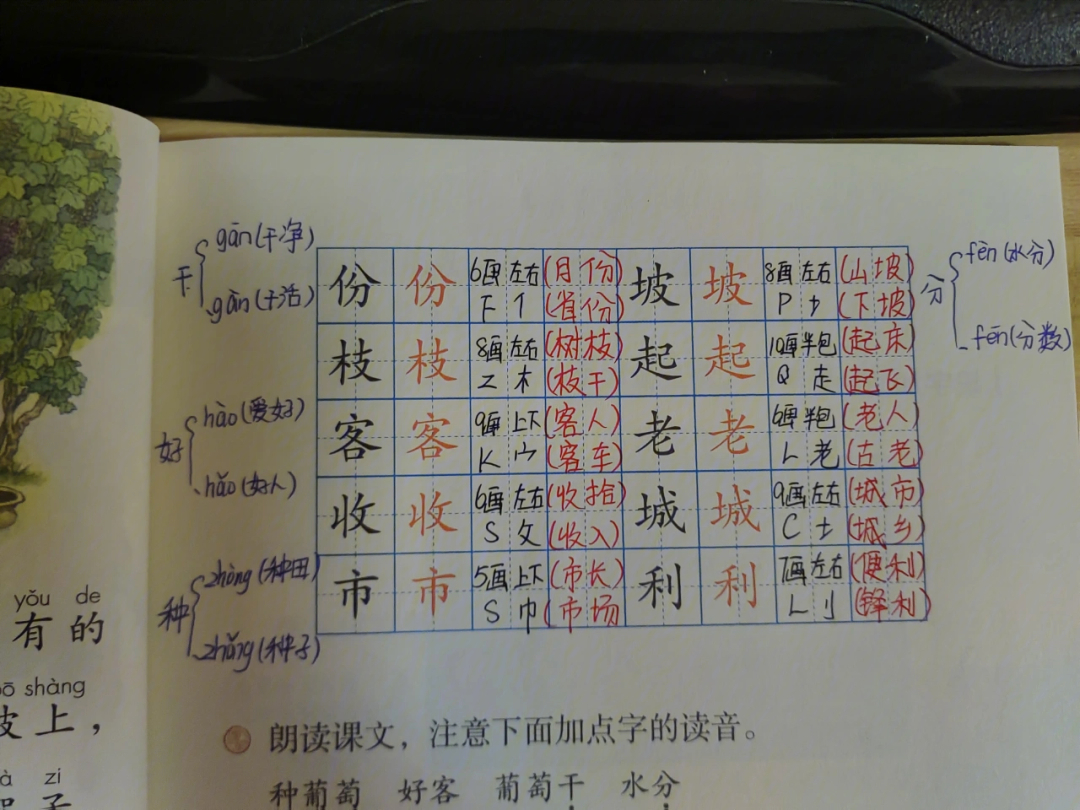 gān(干净)
干
gān(干活)
hào(爱好)
好
hǎo(好人)
zhòng(种田)
种
zhǒng(种子)
份 份 6画 左右 (月份) 坡 坡 8画 左右 (山坡)
F 亻 (省份) P 土 (下坡)
枝 枝 8画 左右 (树枝) 起 起 10画 半包 (起床)
Z 木 (枝干) Q 走 (起飞)
客 客 9画 上下 (客人) 老 老 6画 半包 (老人)
K 宀 (客车) L 老 (古老)
收 收 6画 左右 (收拾) 城 城 9画 左右 (城市)
S 攵 (收入) C 土 (城乡)
市 市 5画 上下 (市长) 利 利 7画 左右 (便利)
S 巾 (市场 L 刂 (锋利)
fèn(水分)
分
fēn(分数)
yǒu de
有 的
shàng
坡 上，
zi
子
朗读课文，注意下面加点字的读音。
种葡萄 好客 葡萄干 水分